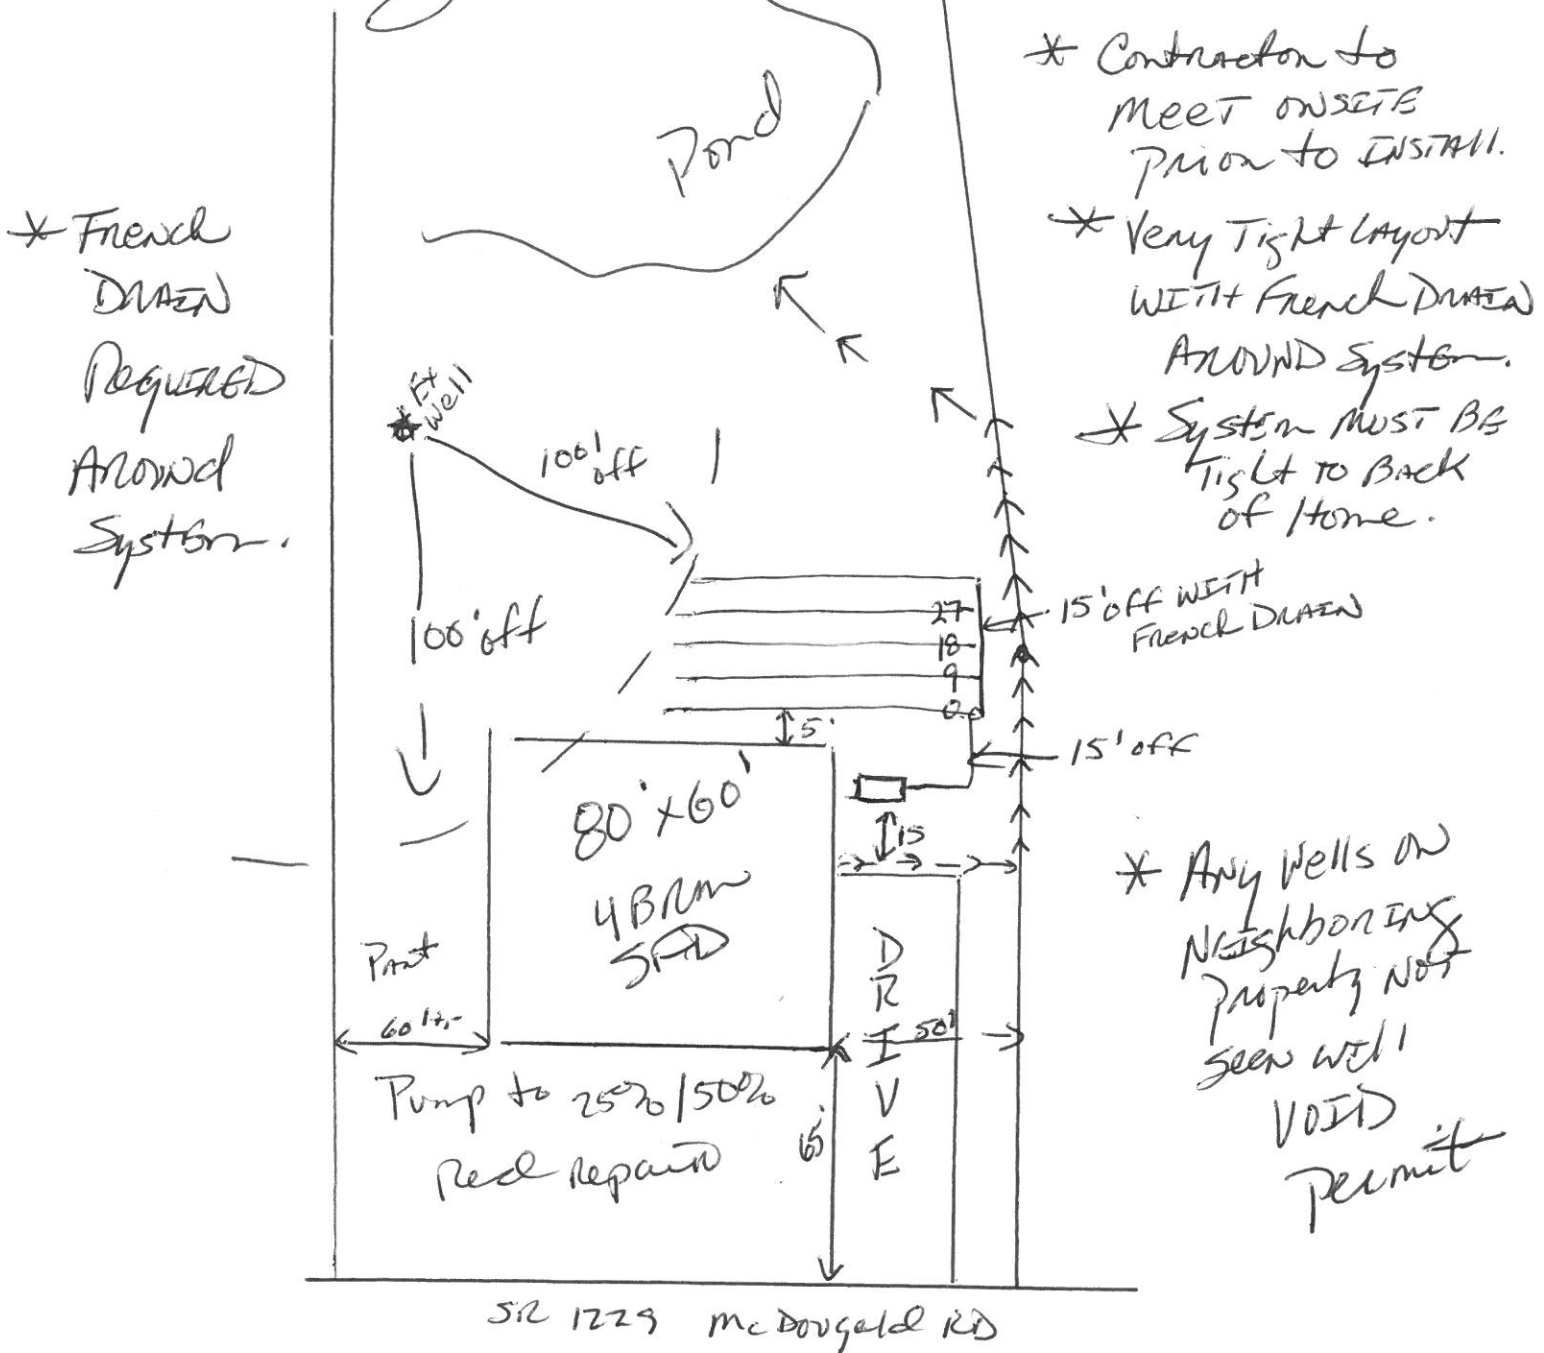 Pond
* Contractor to
MEET ONSITE
Prior to INSTALL.
* Very Tight LAYOUT
WITH French DRAIN
AROUND System.
* System MUST BE
Tight TO BACK
of Home.
* French
DRAIN
REQUIRED
AROUND
System.
Ex
Well
100' off
100' off
27
18
9
0
15' off WITH
FRENCH DRAIN
5'
15' off
15
80' x 60'
4 BRM
SFD
* Any Wells ON
NEIGHBORING
Property NOT
SEEN WILL
VOID
Permit
60' +/-
50'
DRIVE
65'
Pump to 25%/50%
Red repair
SR 1229 McDougald RD